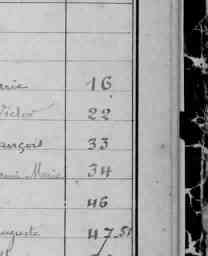 rie 16
Victor 22
ançois 33
Marie 34
46
uguste 47-51